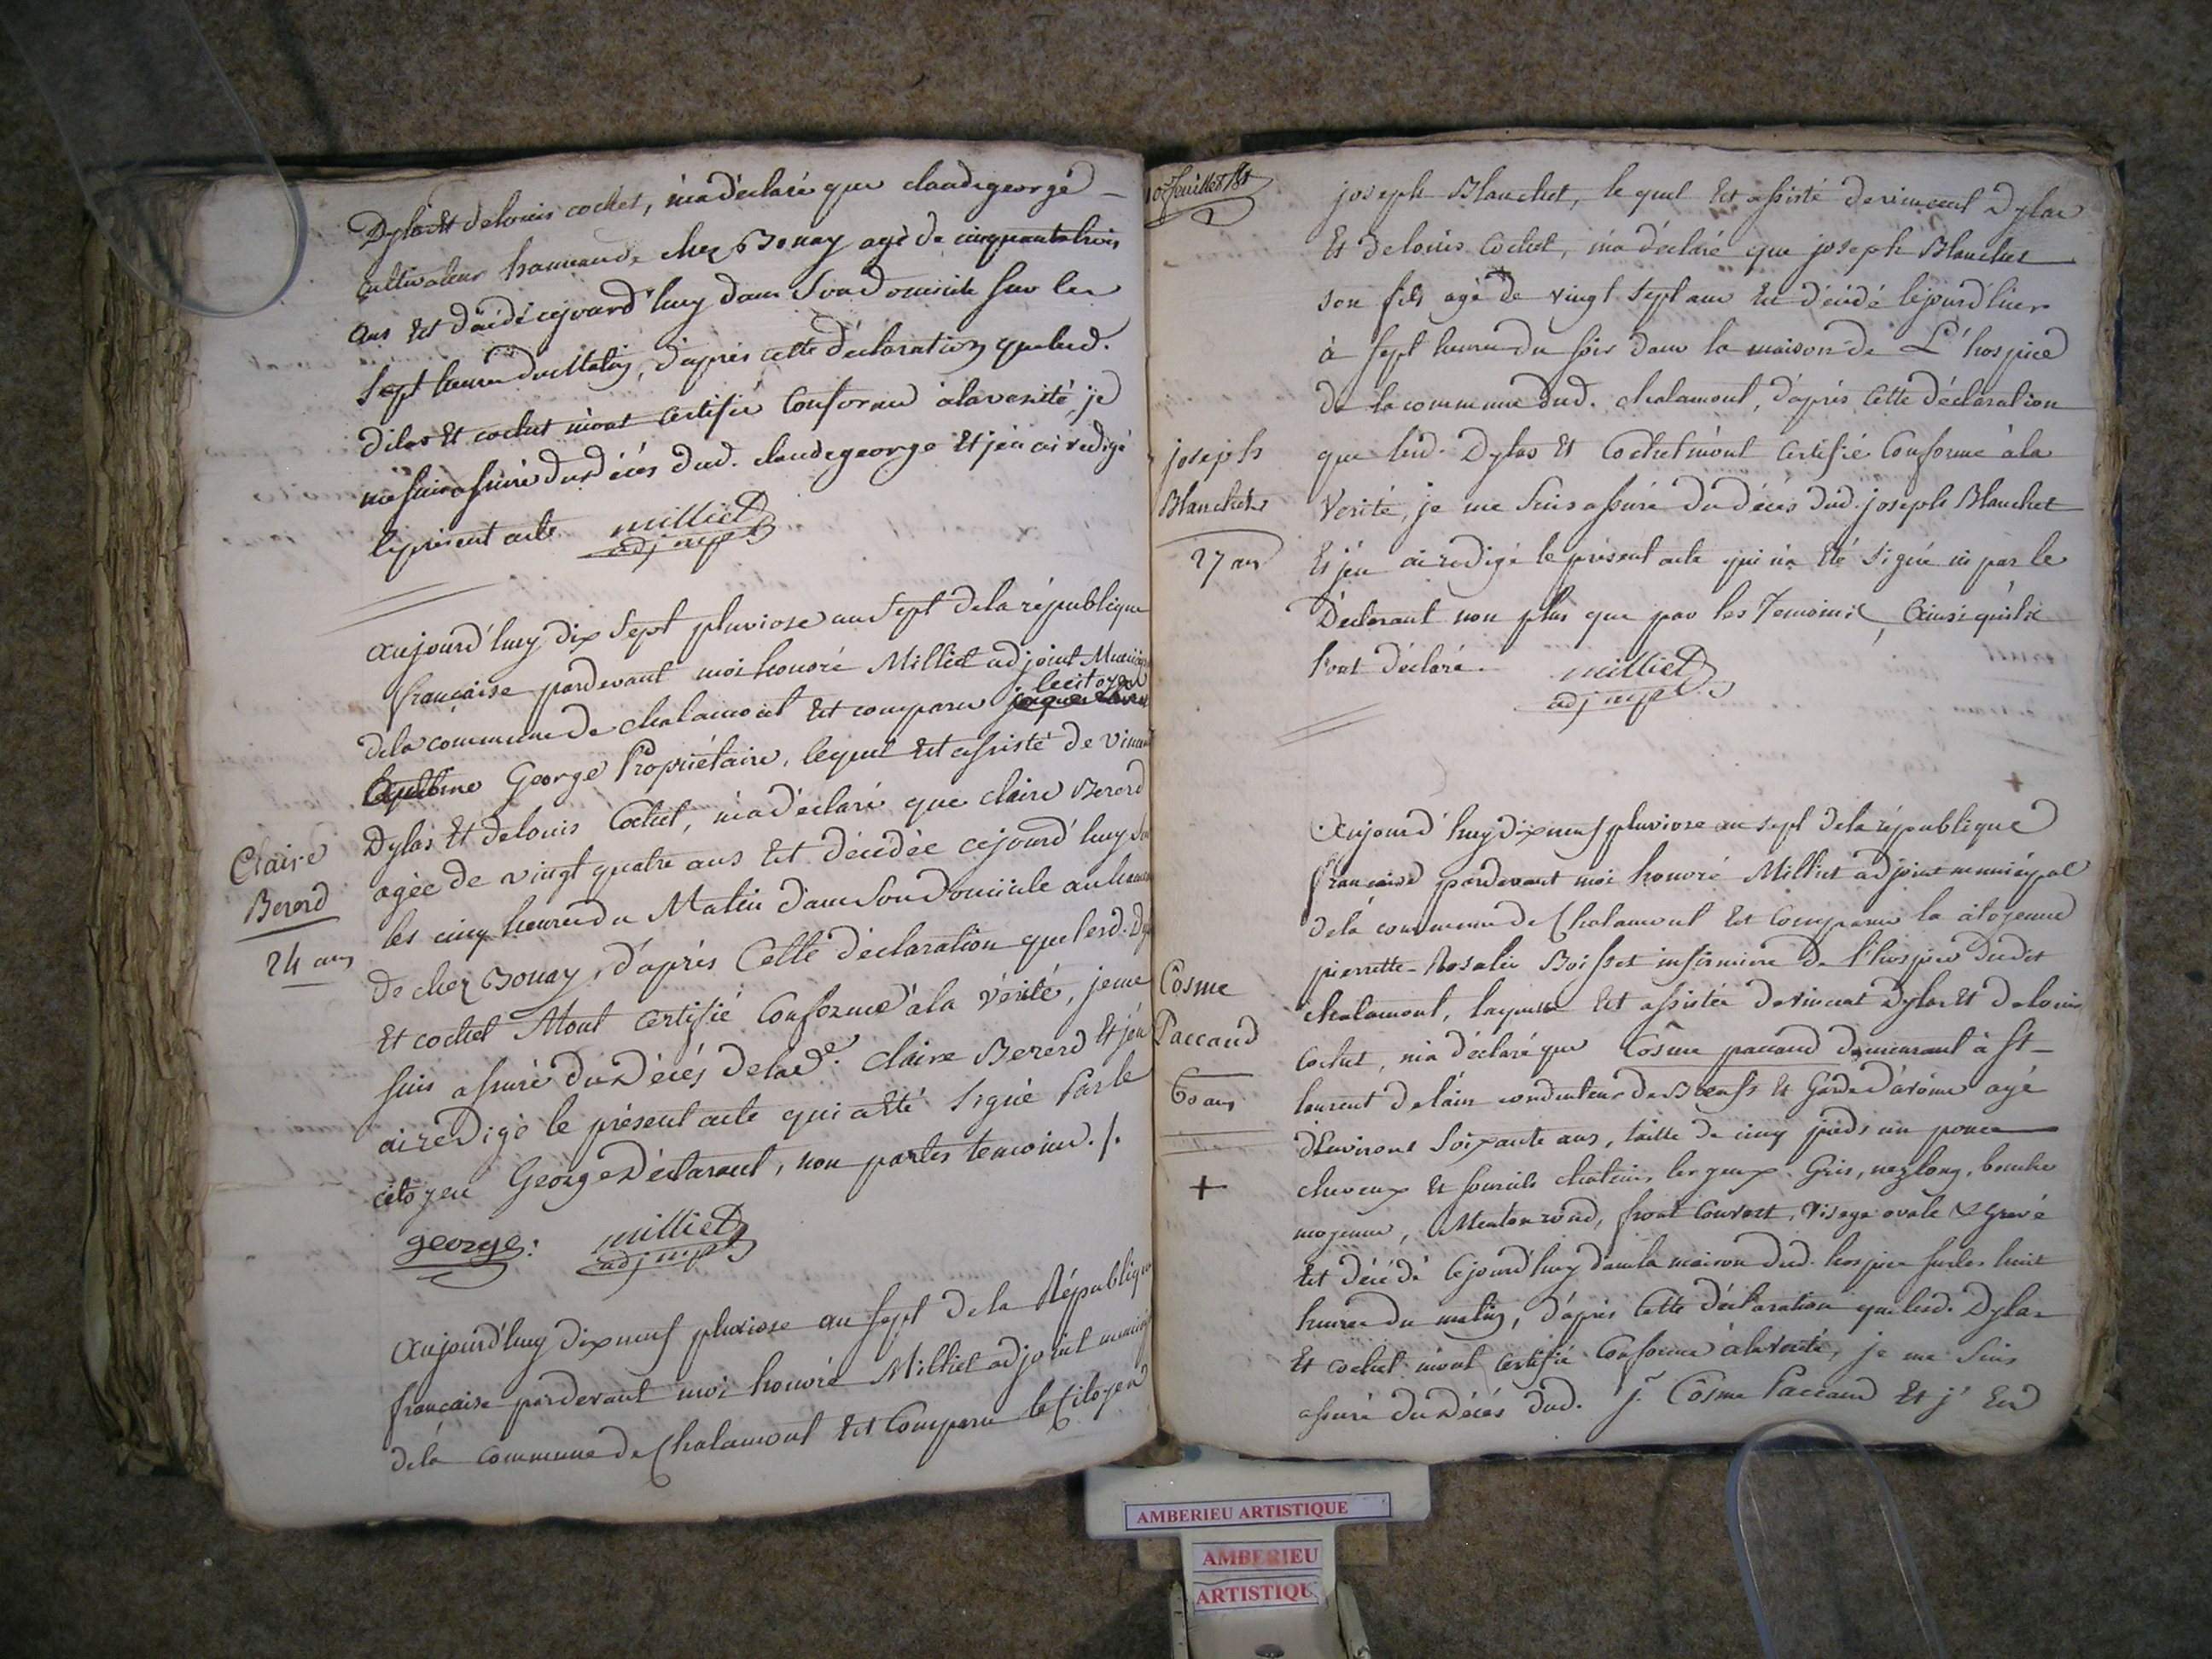 Dylas Et delouis cochet, m'a déclaré que claude george
cultivateur hameau de chez Bonay agé de cinquante trois
ans Est décédé cejourd'huy dans son domicile sur les
sept heures du Matin, d'après cette déclaration que lesd.
Dilas Et cochet m'ont certifié Conforme à la verité, je
me suis assuré du décés dud. claude george Et j'en ai redigé
le présent acte milliet
adj mpl
Aujourd'huy dix sept pluviose an sept dela république
française pardevant moi honoré Milliet adjoint Municip
le citoyen
dela commune de chalamont Est comparu
George Propriétaire, lequel Est assisté de vincent
Dylas Et delouis Cochet, m'a déclaré que claire Berord
agée de vingt quatre ans Est décédée cejourd'huy sur
les cinq heures du Matin dans Son Domicile au hameau
de chez Bonay, d'après Cette déclaration que lesd. Dy
Et cochet M'ont certifié Conforme à la vérité, je me
suis assuré du Décés delad.e Claire Bererd Et j'en
ai redigé le présent acte qui a Eté signé Par le
citoyen George Déclarant, non par les temoins ./.
george: milliet
adj mpl
Claire
Berord
24 ans
Aujourd'huy dix neuf pluviose an sept dela République
française pardevant moi honoré Milliet adjoint municip
dela commune de Chalamont Est Comparu le Citoyen
10e feuillet
joseph Blanchet, le quel Est assisté de vincent Dylas
Et delouis Cochet, m'a déclaré que joseph Blanchet
son fils agé de vingt sept ans Est décédé le jourd'hier
à sept heures du soir dans la maison de L'hospice
de la commune dud. chalamont, d'après Cette déclaration
que lesd. Dylas Et Cochet m'ont Certifié Conforme à la
Verité, je me suis assuré du décés dud. joseph Blanchet
Et j'en ai redigé le présent acte qui n'a Eté signé ni par le
Déclarant non plus que par les Temoins, Ainsi qu'ils
l'ont déclaré. milliet
adj mpl
joseph
Blanchet
27 ans
+
Aujourd'huy dix neuf pluviose an sept dela république
française pardevant moi honoré Milliet adjoint municipal
dela commune de Chalamont Est Comparue la citoyenne
pierrette-Rosalie Boisset infirmiere de l'hospice dudit
chalamont, laquelle Est assistée de vincent Dylas Et delouis
Cochet, m'a déclaré que Côsme paccaud demeurant à St-
laurent delain conducteur de Bœufs Et Garde d'arôme agé
d'Environs soixante ans, taille de cinq pieds un pouce
cheveux Et sourcils chatains, les yeux Gris, nez long, bouche
moyenne, Menton rond, front Couvert, Visage ovale & Gravé
Est décédé Cejourd'huy dans la maison dud. hospice sur les huit
heures du matin, d'après Cette déclaration que lesd. Dylas
Et cochet m'ont certifié Conforme à la Verité, je me suis
assuré du Décés dud. jn Côsme Paccaud Et j'En
Côsme
Paccaud
60 ans
+
AMBERIEU ARTISTIQUE
AMBERIEU
ARTISTIQU